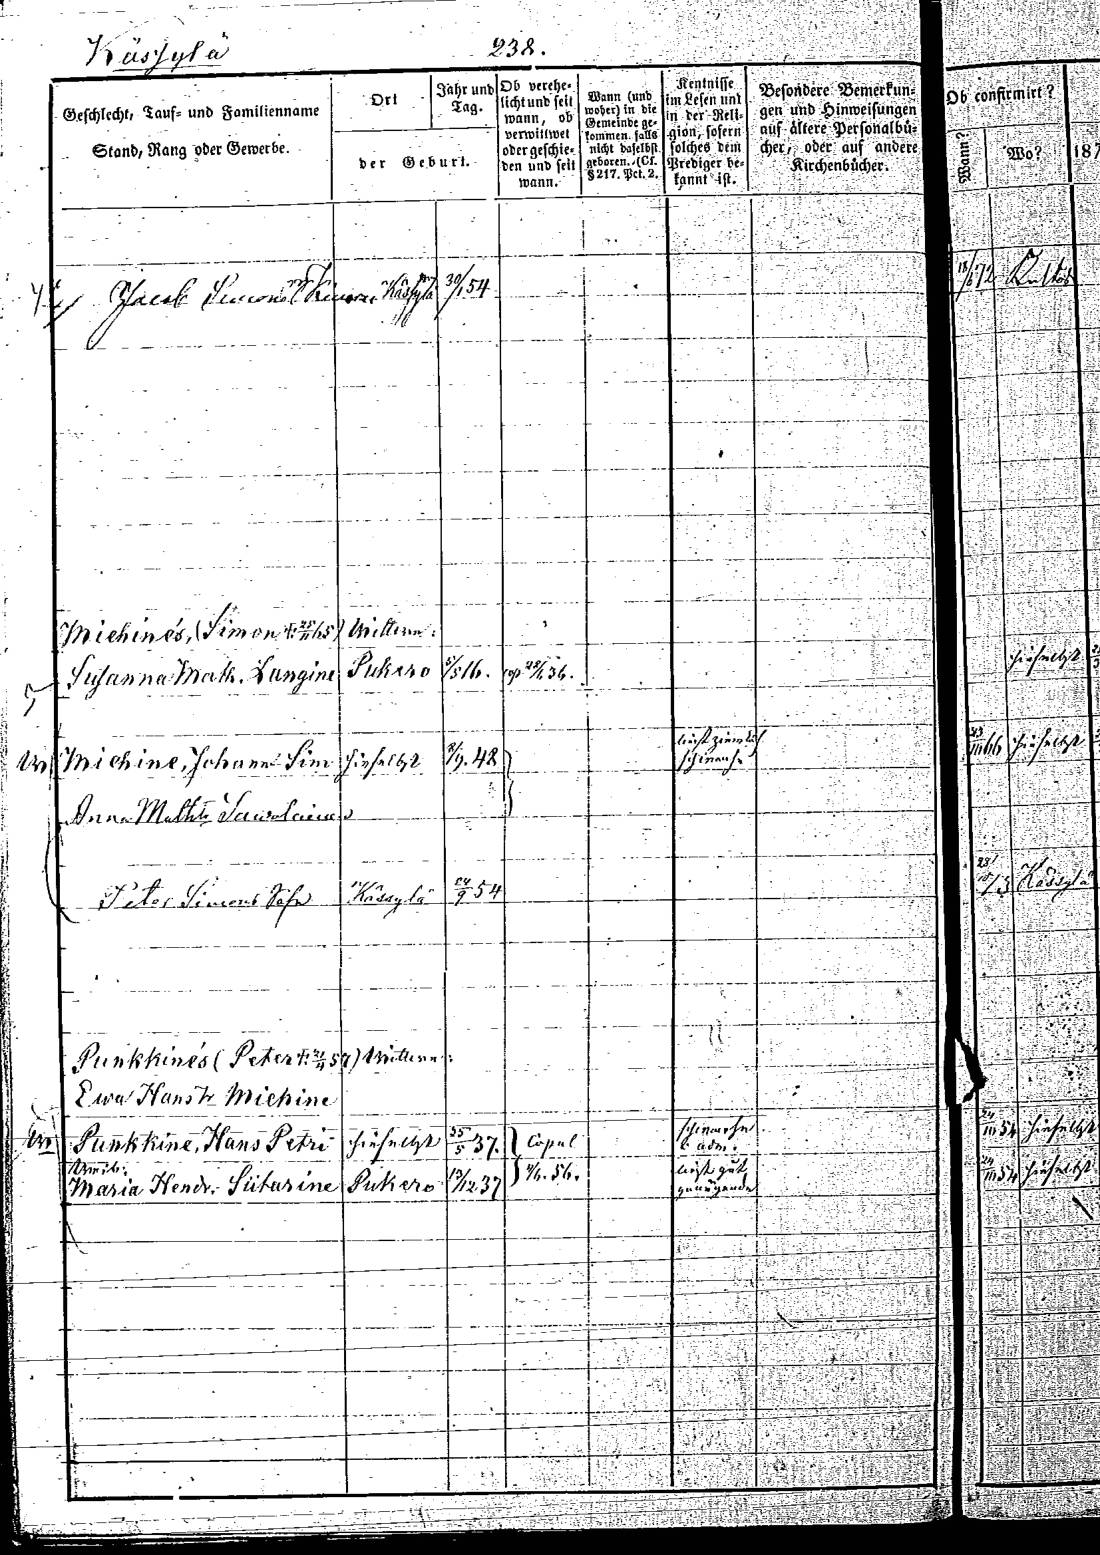 Kässylä 238.
Geschlecht, Tauf- und Familienname
Stand, Rang oder Gewerbe.
Ort
Jahr und Tag.
der Geburt.
Ob verehe-
licht und seit
wann, ob
verwittwet
oder geschie-
den und seit
wann.
Wann (und
woher) in die
Gemeinde ge-
kommen, falls
nicht daselbst
geboren. (Cf.
§ 217. Pct. 2.
Kentnisse
im Lesen und
in der Reli-
gion, sofern
solches dem
Prediger be-
kannt ist.
Besondere Bemerkun-
gen und Hinweisungen
auf ältere Personalbü-
cher, oder auf andere
Kirchenbücher.
Ob confirmirt?
Wann?
Wo?
187
Jacob Simons Kässylä 54 72
Michinés, (Simon †. 65) Wittwe:
Susanna Math. Langine Pukero 16. cop 36. hieselbst
Michine, Johann Sim hieselbst 8/9. 48 66 hieselbst
Anna Matth
Peter Simons Sohn Kässylä 24/9 54 Kässylä
Punkkinés (Peter †. 57) Wittwe:
Ewa Hans tr Michine
Punkkine, Hans Petri hieselbst 37. Copul schwache 54 hieselbst
Weib:
Maria Hendr. Sutarine Pukero 13/12 37 56. liest gut, genügende 54 hieselbst